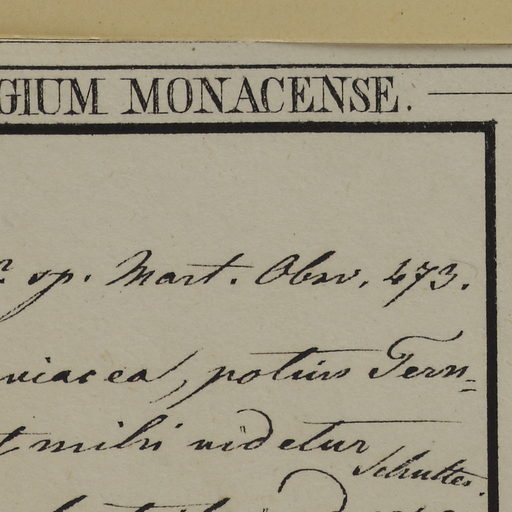 GIUM MONACENSE.
sp. Mart. Obsv. 473.
niacea, potius Tern-
t mihi videtur
Schultes.